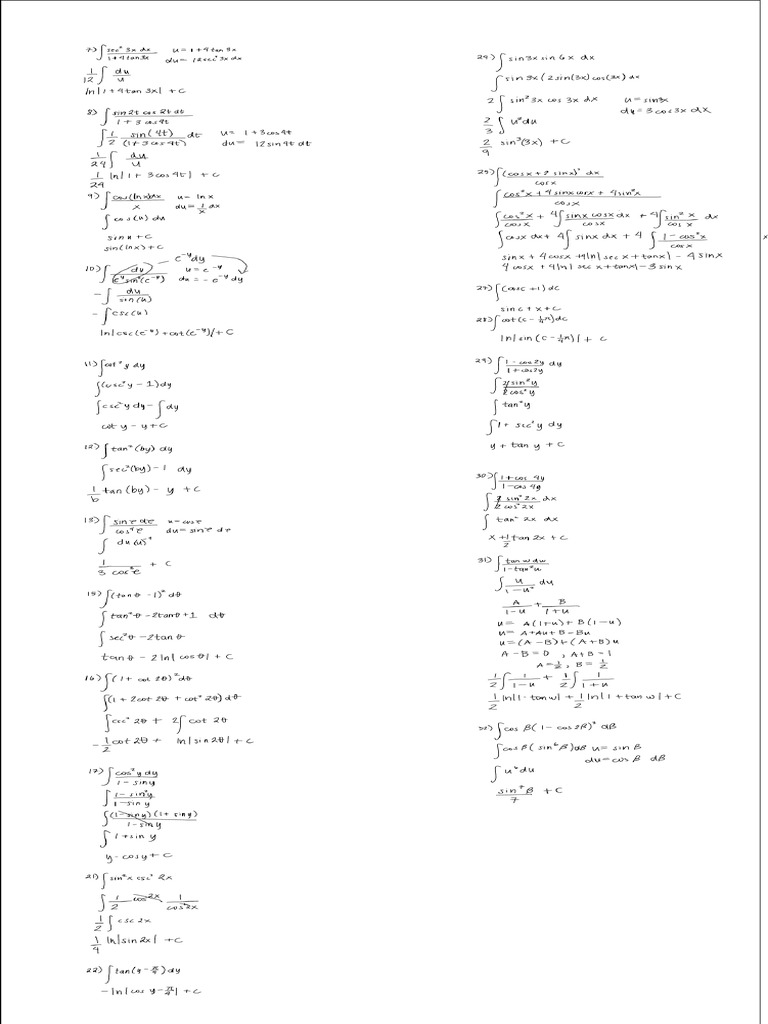 7) ∫ sec² 3x dx / 1+4tan3x   u = 1+4tan3x
du = 12sec²3x dx
1/12 ∫ du/u
ln|1+4tan3x| + C
8) ∫ sin2t cos2t dt / 1+3cos4t
∫ 1/2 sin(4t)/(1+3cos4t) dt   u = 1+3cos4t
du = 12sin4t dt
1/24 ∫ du/u
1/24 ln|1+3cos4t| + C
9) ∫ cos(lnx)dx / x   u = lnx
du = 1/x dx
∫ cos(u) du
sinu + C
sin(lnx) + C
e^-y dy
10) ∫ dy / e^y sin(e^-y)   u = e^-y
du = -e^-y dy
- ∫ du / sin(u)
- ∫ csc(u)
ln|csc(e^-y)+cot(e^-y)| + C
11) ∫ cot²y dy
∫ (csc²y - 1)dy
∫ csc²y dy - ∫ dy
cot y - y + C
12) ∫ tan²(by) dy
∫ sec²(by) - 1 dy
1/b tan(by) - y + C
15) ∫ (tanθ - 1)² dθ
∫ tan²θ - 2tanθ + 1 dθ
∫ sec²θ - 2tanθ
tanθ - 2ln|cosθ| + C
16) ∫ (1 + cot2θ)² dθ
∫ (1 + 2cot2θ + cot²2θ) dθ
∫ csc²2θ + 2∫ cot2θ
-1/2 cot2θ + ln|sin2θ| + C
17) ∫ cos²y dy / 1-siny
∫ 1-sin²y / 1-siny
∫ (1-siny)(1+siny) / 1-siny
∫ 1+siny
y - cosy + C
21) ∫ sin²x csc²2x
1/2 ∫ csc2x
1/4 ln|sin2x| + C
22) ∫ tan(y - π/4) dy
-ln|cos y - π/4| + C
24) ∫ sin3x sin6x dx
∫ sin3x (2sin(3x)cos(3x) dx
2 ∫ sin²3x cos3x dx   u = sin3x
du = 3cos3x dx
2/3 ∫ u²du
2/9 sin³(3x) + C
25) ∫ (cosx+2sinx)² dx / cosx
∫ cos²x + 4sinxcosx + 4sin²x / cosx
∫ cos²x/cosx + 4∫ sinx cosx dx/cosx + 4∫ sin²x/cosx dx
∫ cosx dx + 4∫ sinx dx + 4 ∫ 1-cos²x/cosx
sinx + 4cosx + 4ln|secx+tanx| - 4sinx
4cosx + 4ln|secx+tanx| - 3sinx
27) ∫ (cosc + 1)dc
sinc + x + C
28) ∫ cot(c - 1/4π)dc
ln|sin(c - 1/4π)| + C
29) ∫ 1-cos2y / 1+cos2y dy
∫ 2sin²y / 2cos²y
∫ tan²y
∫ 1 + sec²y dy
y + tany + C
30) ∫ 1+cos4y / 1-cos4y
∫ 2sin²2x / 2cos²2x dx
∫ tan²2x dx
x + 1/2 tan2x + C
31) ∫ tanw dw / 1-tan²w
∫ u / 1-u² du
A/1-u + B/1+u
u = A(1+u) + B(1-u)
u = A+Au+B-Bu
u = (A-B)+(A+B)u
A-B=0 , A+B=1
A=1/2, B=1/2
1/2 ∫ 1/1-u + 1/2 ∫ 1/1+u
1/2 ln|1-tanw| + 1/2 ln|1+tanw| + C
∫ cosβ(sin⁶β)dβ u = sinβ
du = cosβ dβ
∫ u⁶du
sin⁷β/7 + C